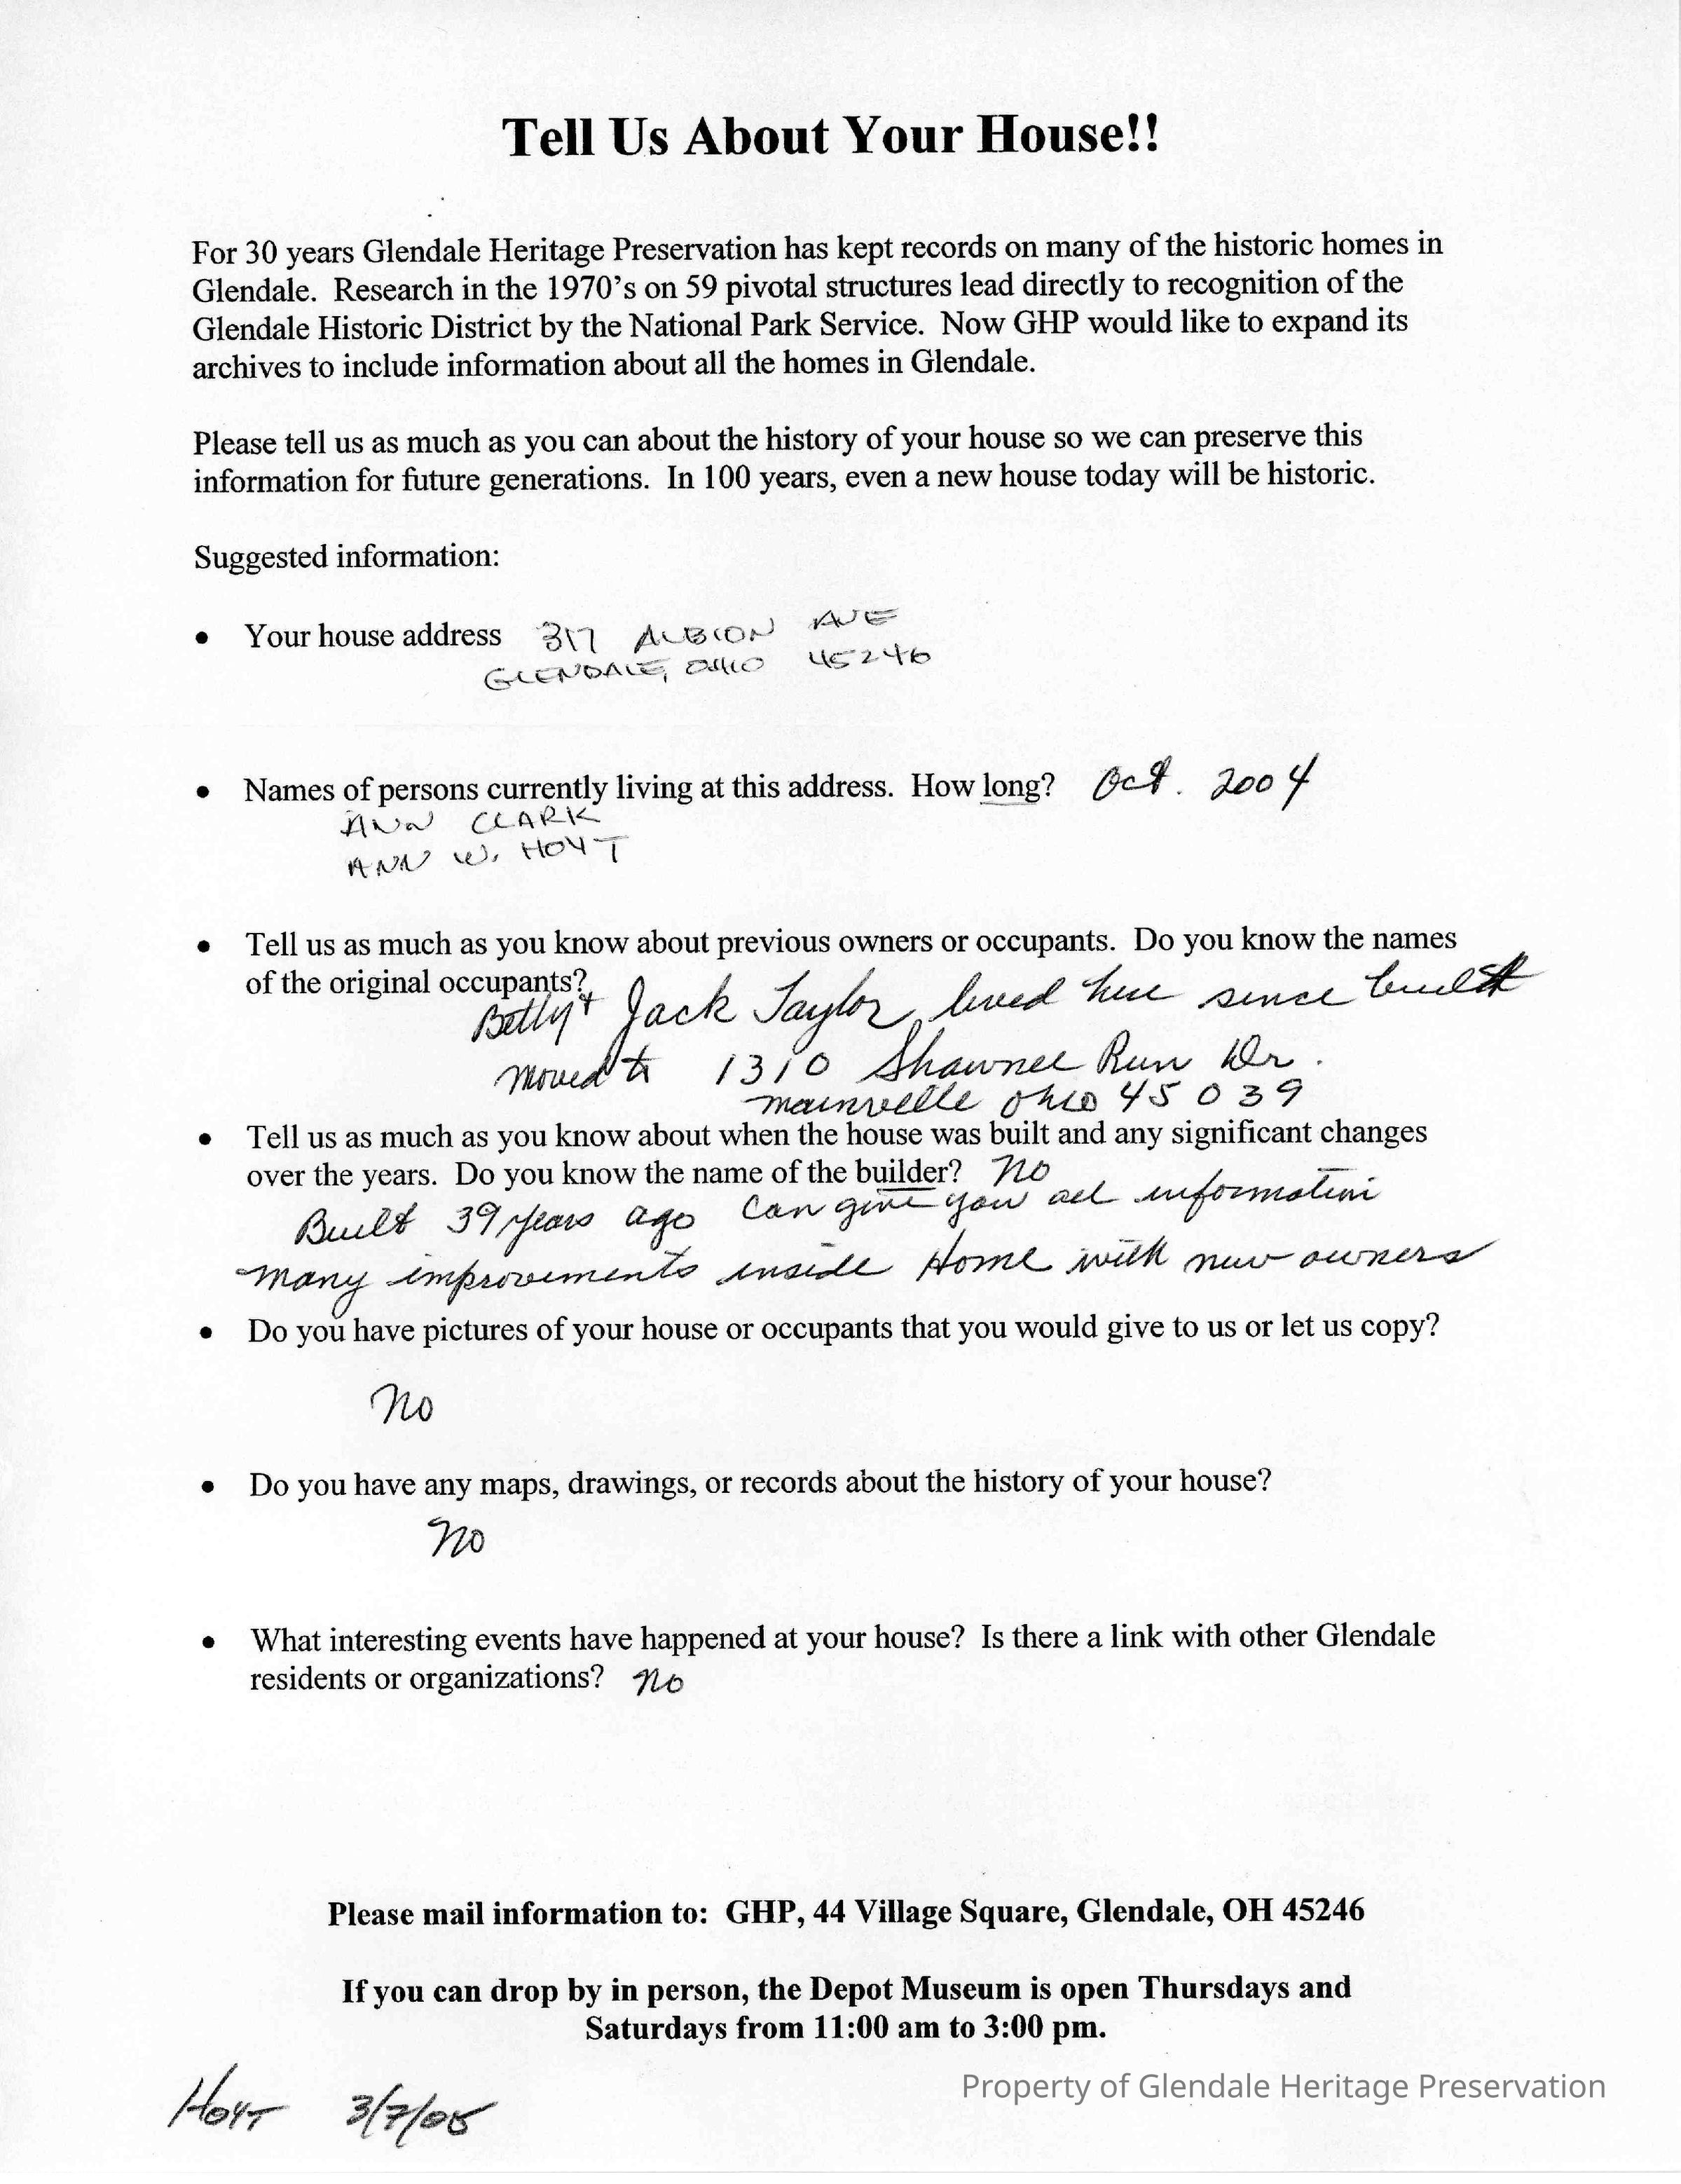 Tell Us About Your House!!
For 30 years Glendale Heritage Preservation has kept records on many of the historic homes in
Glendale. Research in the 1970's on 59 pivotal structures lead directly to recognition of the
Glendale Historic District by the National Park Service. Now GHP would like to expand its
archives to include information about all the homes in Glendale.
Please tell us as much as you can about the history of your house so we can preserve this
information for future generations. In 100 years, even a new house today will be historic.
Suggested information:
• Your house address 317 ALBION AVE
GLENDALE, OHIO 45246
• Names of persons currently living at this address. How long? Oct. 2004
ANN CLARK
ANN W. HOYT
• Tell us as much as you know about previous owners or occupants. Do you know the names
of the original occupants?
Betty + Jack Taylor, lived here since built
moved to 1310 Shawnee Run Dr.
Mainville Ohio 45039
• Tell us as much as you know about when the house was built and any significant changes
over the years. Do you know the name of the builder? No
Built 39 years ago Can give you all information
many improvements inside Home with new owners
• Do you have pictures of your house or occupants that you would give to us or let us copy?
No
• Do you have any maps, drawings, or records about the history of your house?
No
• What interesting events have happened at your house? Is there a link with other Glendale
residents or organizations? No
Please mail information to: GHP, 44 Village Square, Glendale, OH 45246
If you can drop by in person, the Depot Museum is open Thursdays and
Saturdays from 11:00 am to 3:00 pm.
HOYT 3/7/05
Property of Glendale Heritage Preservation